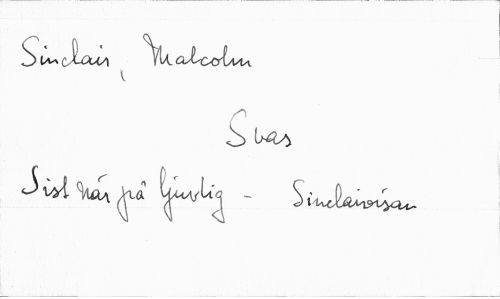 Sinclair, Malcolm
Svas
Sist när på ljuvlig - Sinclairvisan